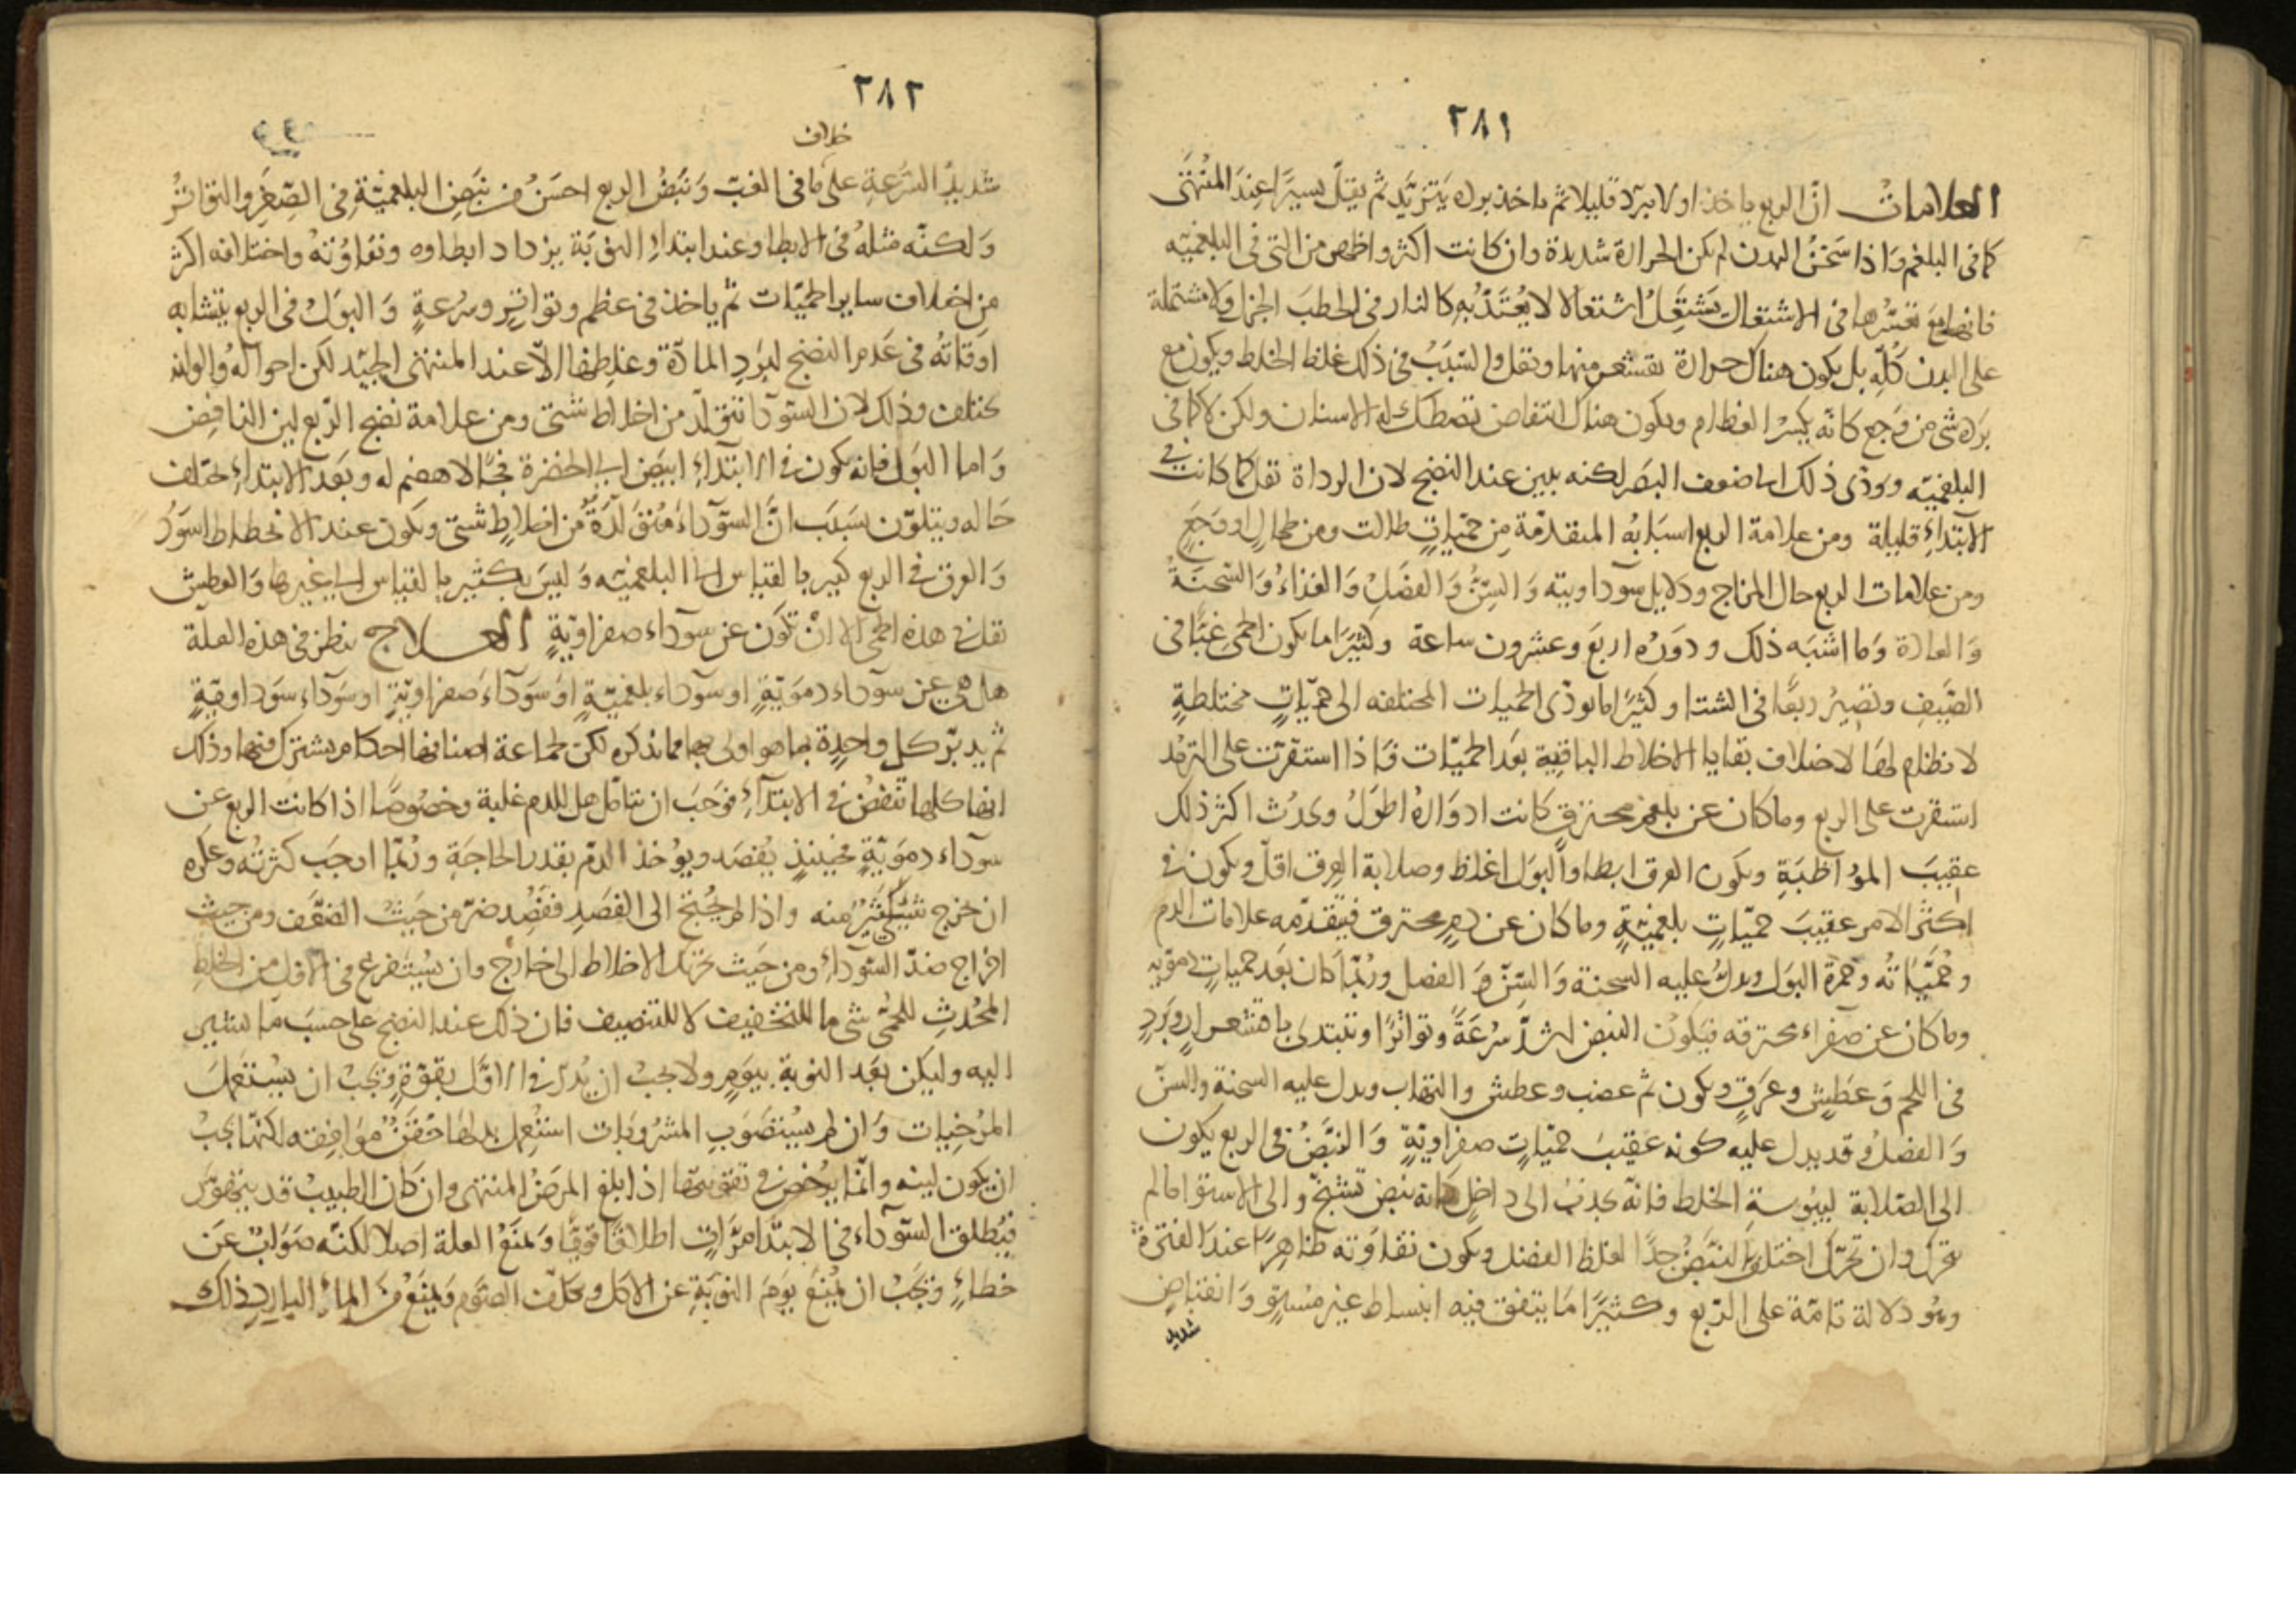 ٢٨١
العلامات انّ الربع ياخذ اولا ببرد قليلا ثم ياخذ برده يتزيّد ثم يقلّ يسيرًا عند المنتهى
كما فى البلغم واذا سخن البدن لم يكن الحرارة شديدة وان كانت اكثر واظهر من التى فى البلغميّه
فانها مع تعسّرها فى الاشتعال يشتعل اشتعالا لا يعتدّ به كالنار فى الحطب الجزل ولا مشتملة
على البدن كلّه بل يكون هناك حرارة يقشعر منها وثقل والسّبب فى ذلك غلظ الخلط ويكون مع
برده شى من وجع كانّه يكسر العظام ويكون هناك انتفاض تصطك له الاسنان ولكن لا كما فى
البلغميّه ويودّى ذلك الى ضعف البصر لكنه يلين عند النضج لان الرداة تقل كما كانت فى
الابتداء قليلة ومن علامة الربع اسبابه المتقدّمة من حمّيات طالت ومن طحال او وجع
ومن علامات الربع حال المزاج ودلايل سوداويته والسّنّ والفصل والغذاء والسّحنة
والعادة وما اشبه ذلك ودوره اربع وعشرون ساعة وكثيرًا ما يكون الحمى غبًّا فى
الصّيف وتصير ربعًا فى الشتا وكثيرًا ما يودّى الحميات المختلفه الى حمّيات مختلطة
لا نظام لها لاختلاف بقايا الاخلاط الباقية بعد الحميّات فاذا استقرّت على الترمد
استقرت على الربع وما كان عن بلغم محترق كانت ادواره اطول ويحدث اكثر ذلك
عقيب المواظبة ويكون العرق ابطا والبول اغلظ وصلابة العرق اقلّ ويكون فى
اكثر الامر عقيب حمّيات بلغميّة وما كان عن دم محترق فيتقدّمه علامات الدم
وحمّياته وحمرة البول ويدلّ عليه السحنة والسّنّ و الفصل وربّما كان بعد حميات دمويه
وما كان عن صفراء محترقه فيكون النبض اشدّ سرعةً وتواترًا وتبتدى باقشعرار وبرد
فى اللحم وعطش وعرق ويكون ثم غضب وعطش والتهاب ويدل عليه السحنة والسنّ
والفصل وقد يدل عليه كونه عقيب حمّيات صفراويّة والنبض فى الربع يكون
الى الصّلابة ليبوسة الخلط فانّه يجذب الى داخل كانه نبض تشنّج والى الاستوا ما لم
تحرّك وان تحرّك اختلف النبض جدًّا لغلظ الفضل ويكون تفاوته ظاهرًا عند الفترة
وهو دلالة تامّة على الرّبع وكثيرًا ما يتفق فيه انبساط غير مستو وانقباض
شديد
٢٨٢
خلاف
شديد السّرعة على ما فى الغبّ ونبض الربع احسن من نبض البلغميّة فى الصّغر والتواتر
ولكنّه مثله فى الابطا وعند ابتداء النوبة يزداد ابطاوه وتفاوته واختلافه اكثر
من اختلاف ساير الحميّات ثم ياخذ فى عظم وتواتر وسرعة والبول فى الربع يتشابه
اوقاته فى عدم النضج لبرد المادّة وغلظها الا عند المنتهى الجيّد لكن احواله والوانه
تختلف وذلك لان السّودا تتولّد من اخلاط شتى ومن علامة نضج الرّبع لين النافض
واما البول فانه يكون فى الابتداء ابيض الى الخضرة فجًّا لا هضم له وبعد الابتداء تختلف
حاله ويتلوّن بسبب انّ السّوداء متولّدة من اخلاط شتى ويكون عند الانحطاط اسود
والعرق فى الربع كبير بالقياس الى البلغميّه وليس بكثير بالقياس الى غيرها والعطش
يقل فى هذه الحمى الا ان تكون عن سوداء صفراويّة العــلاج ينظر فى هذه العلّة
هل هى عن سوداء دمويّة او سوداء بلغميّة او سوداء صفراويّة او سوداء سوداويّة
ثم يدبّر كل واحدة بما هو اولى بها مما نذكره لكن لجماعة اصنافها احكام يشترك فيها وذلك
انها كلها تنفض فى الابتداء فوجب ان يتامّل هل للدم غلبة وخصوصًا اذا كانت الربع عن
سوداء دمويّة فحينيذ يفصد ويوخذ الدّم بقدر الحاجة وربّما اوجب كثرته وعكره
ان خرج شى كثير منه واذا لم يحتج الى الفصد ففصد ضرّ من حيث الضعف ومن حيث
اخراج ضدّ السّوداء ومن حيث تحرّك الاخلاط الى خارج وان يستفرغ فى الاول من الخلط
المحدث للحمّى شى ما للتخفيف لا للتنصيف فان ذلك عند النضج على حسب ما سنبيّن
اليه وليكن بعد النوبة بيوم ولا يجب ان يدرّ فى الاول بقوّة ويجب ان يستعمل
المرخيات وان لم يستصوب المشروبات استعمل بدلها حقن موافقه ولكنها يجب
ان يكون لينه وانّما يرخص فى تقويتها اذا بلغ المرض المنتهى وان كان الطبيب قد يتهوّر
فيطلق السّوداء فى الابتدا مرّات اطلاقا قويًّا ويمنع العلة اصلا لكنّه صواب عن
خطاء ويجب ان يمنع يوم النوبة عن الاكل ويكلّف الصّوم ويمنع من الماء البارد ذلك